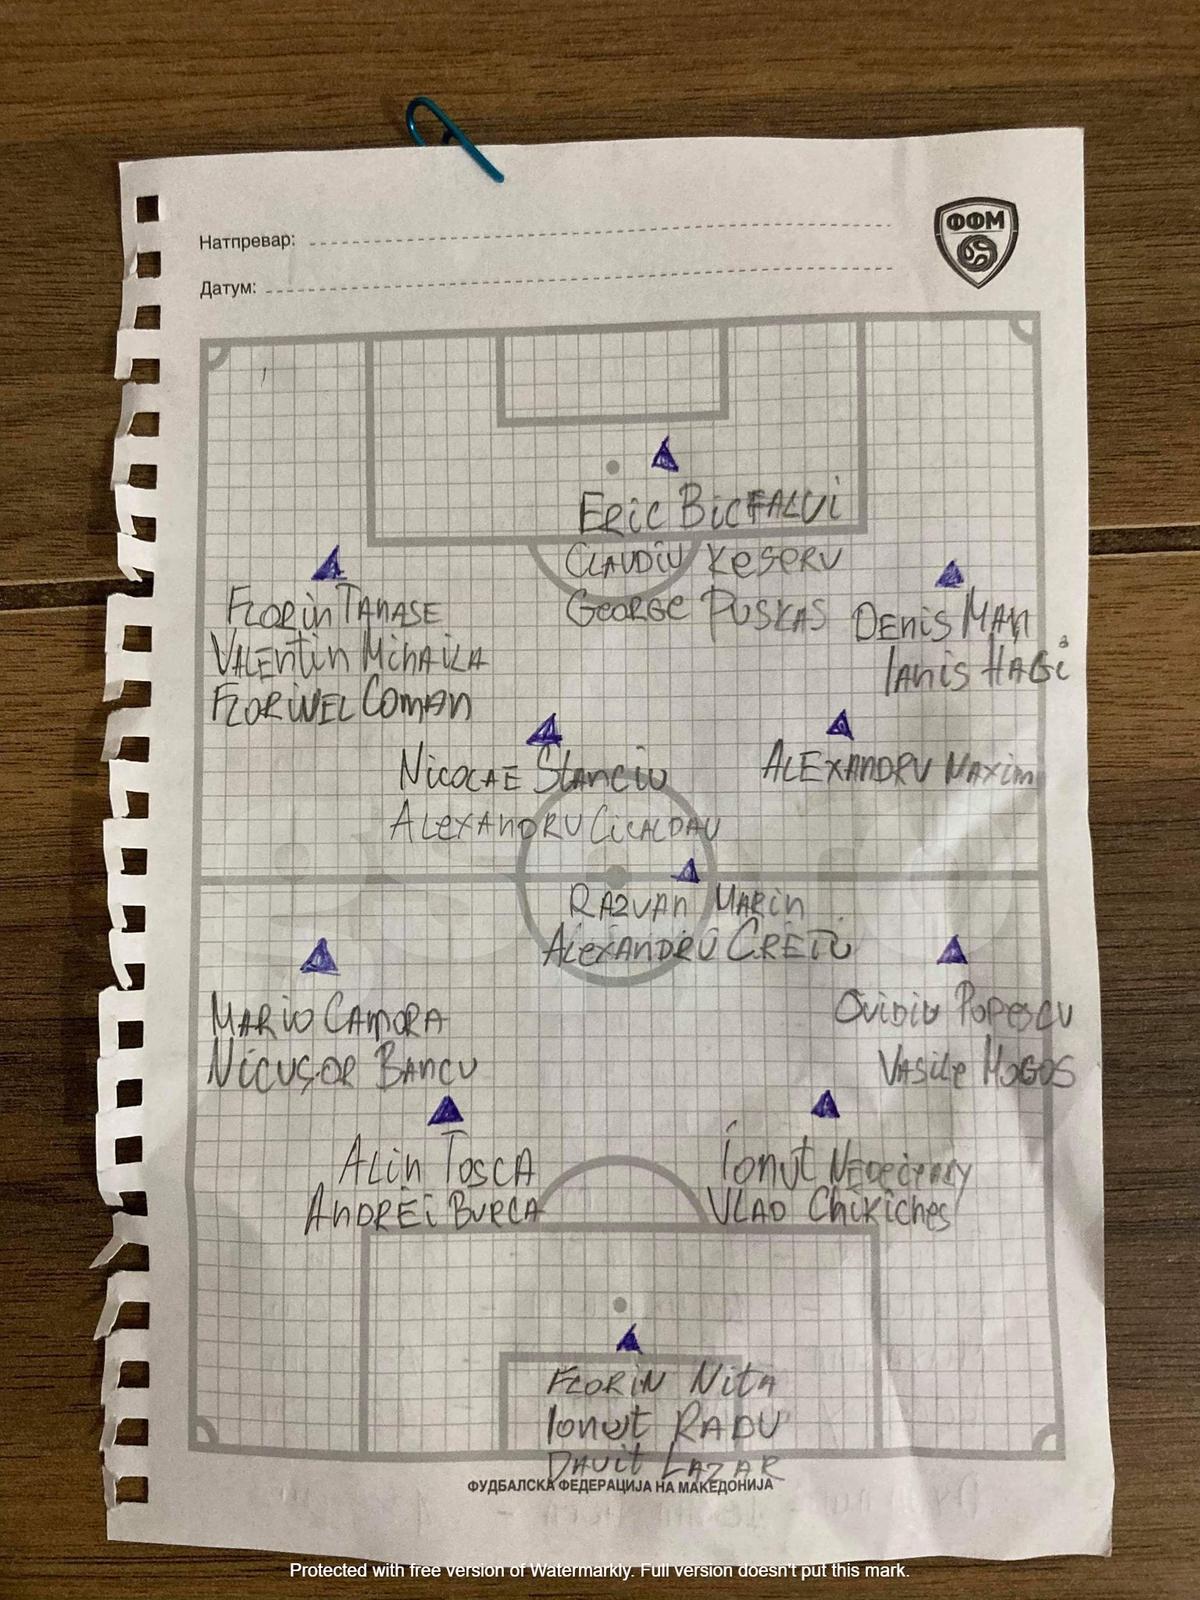 Натпревар:
ФФМ
Датум:
ERic BicFALVi
CLAUDiU KeSeRU
GeORGe PUSKAS
FLORin TANASE
VALEntin MihAiLA
FLORiNEL COMAn
DEnis MAn
IAnis HAGi
NicOLAE Stanciu
ALEXANDRU CiCALDAU
ALEXANDRU MAXim
RAZVAn MARin
ALeXAnDRU CRETU
MARiO CAMORA
NicUŞOR BAnCU
OviDiU POPeSCU
VASiLe MOGOS
ALin TOSCA
ANDREi BURCA
Ionut NEDeLceARy
VLAD ChiKiches
FLORiN NitA
Ionut RADU
DAvit LAZAR
ФУДБАЛСКА ФЕДЕРАЦИЈА НА МАКЕДОНИЈА
Protected with free version of Watermarkly. Full version doesn't put this mark.